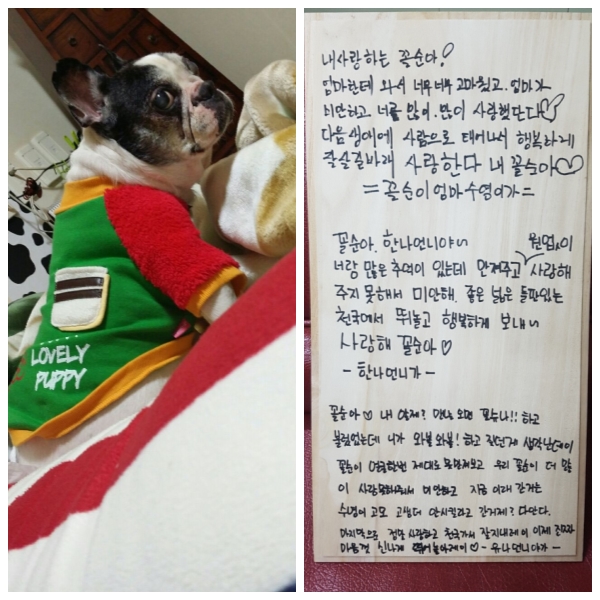 LOVELY
PUPPY
내사랑하는 꼴순아!
엄마한테 와서 너무너무 고마웠고. 엄마가
미안하고 너를 많이. 많이 사랑했단다♡
다음생애에 사람으로 태어나서 행복하게
잘살길바래 사랑한다 내 꼴순아♡
=꼴순이엄마수영이가=
꼴순아. 한나언니야~
원없이
너랑 많은추억이 있는데 안겨주고 사랑해
주지 못해서 미안해. 좋은 넓은 들판있는
천국에서 뛰놀고 행복하게 보내~
사랑해 꼴순아♡
-한나언니가-
꼴순아♡ 내 맨날 오면 꼴순나!! 하고
불렀었는데 니가 와볼와볼! 하고 짖던게 생각난데이
꼴순이 제대로 못안쳐보고 우리 꼴순이 더 많
이 사랑못해줘서 미안하고 지금 이래 간거는
수영이고모 고생더 안시킬라고 간거제? 다안다.
마지막으로 정말 사랑하고 천국가서 잘지내레이 이제
마음껏 신나게 뛰어놀아레이♡ -유나언니가-